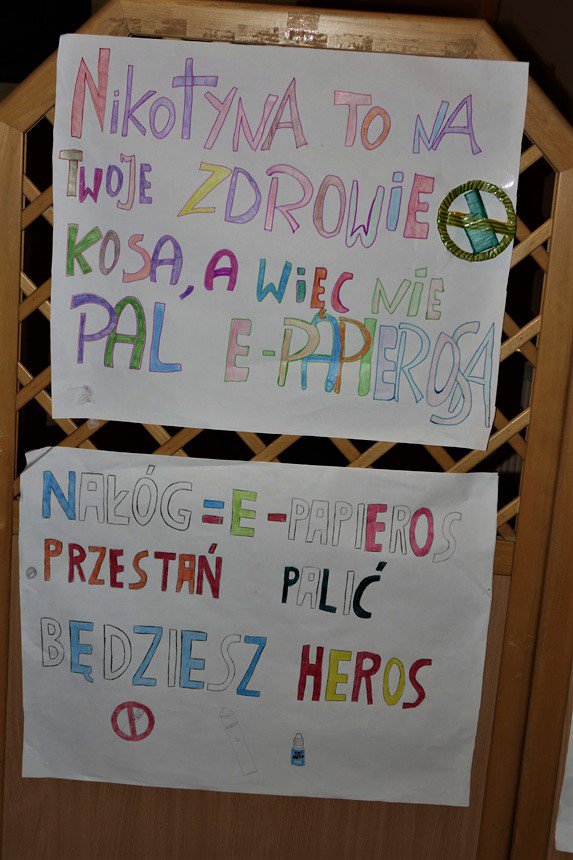 NiKOTYNA TO NA
TWOJE ZDROWiE
KOSA, A WiĘC NiE
PAL E-PAPIEROSA
NAŁÓG=E-PAPIEROS
PRZESTAŃ PALIĆ
BĘDZIESZ HEROS